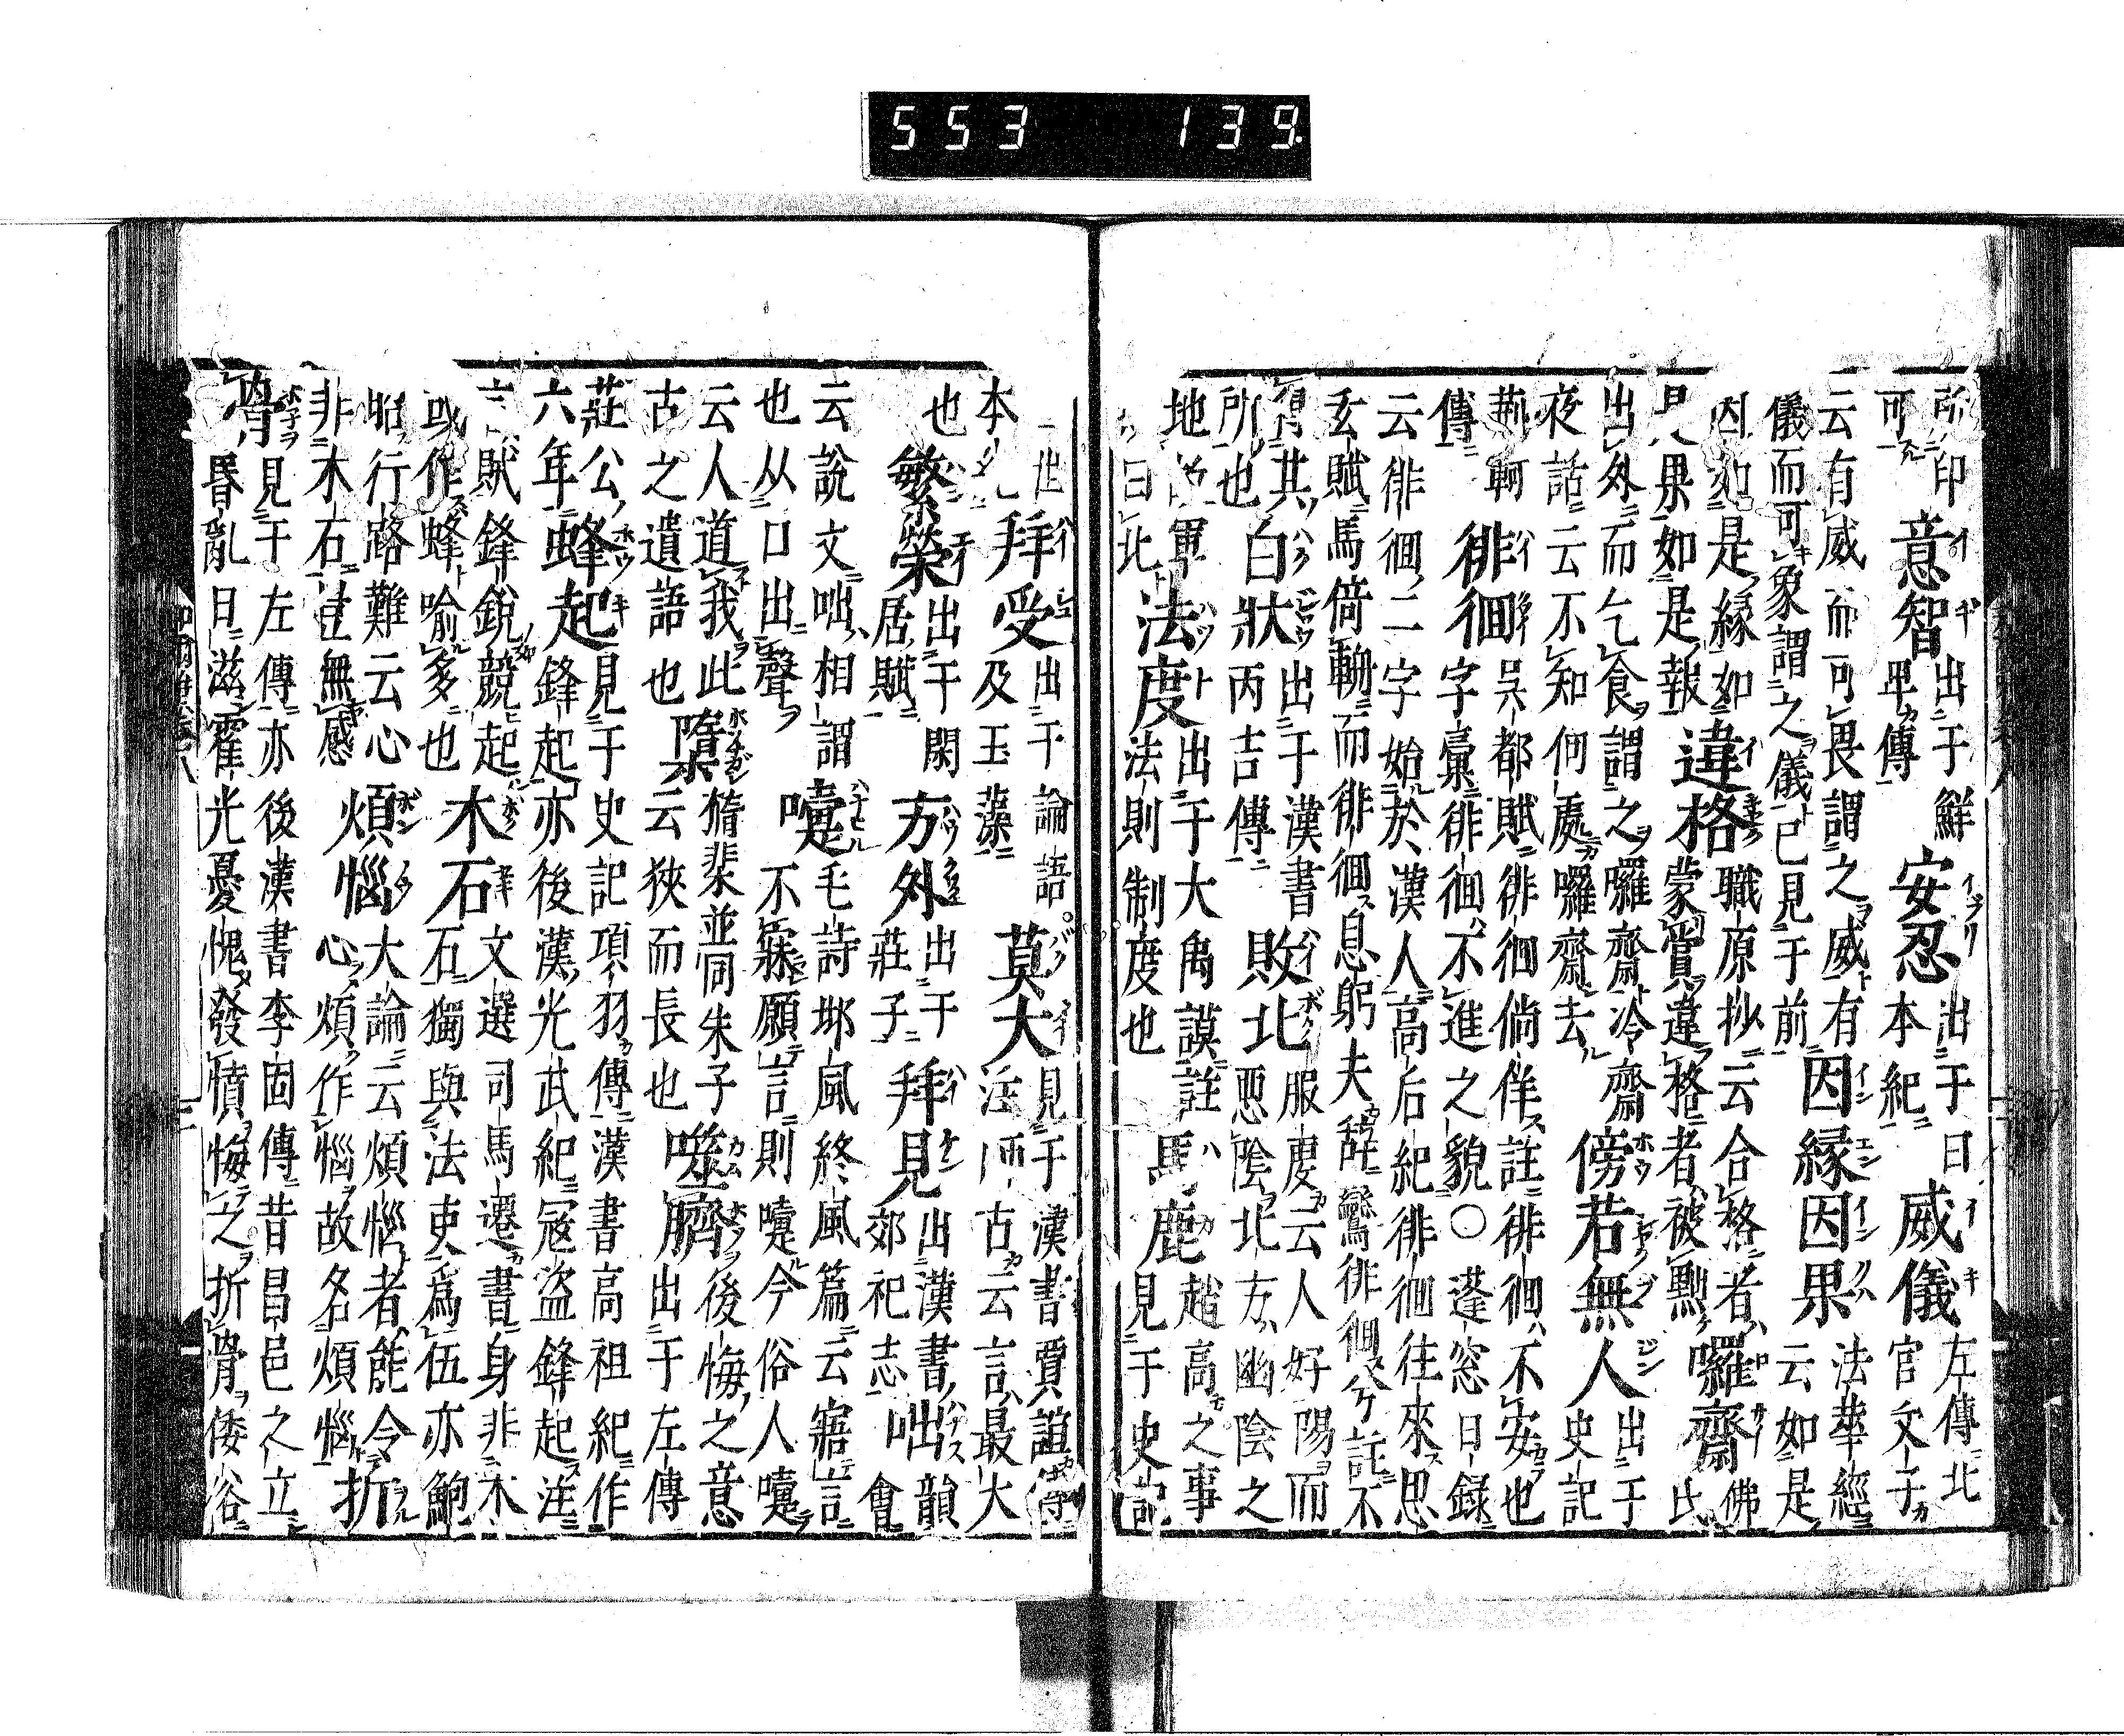 所印
可
意智
出于鮮
于傳
安忍
出于日
本紀
威儀
左傳北
官文子
云有威而可畏謂之威有
儀而可象謂之儀已見于前
因縁因果
法華經
云如是
因如是縁如
是果如是報
違格
職原抄云合格者
蒙賞違格者被黜
囉齋
佛
氏
出外而乞食謂之囉齋冷齋
夜話云不知何處囉齋去
傍若無人
出于
史記
荊軻
傳
徘徊
吳都賦徘徊倘佯註徘徊不安也
字彙徘徊不進之貌○蓬窓日録
云徘徊二字始於漢人高后紀徘徊往來思
玄賦馬倚輈而徘徊息躬夫辭鸞徘徊兮註不
得其
所也
白狀
出于漢書
丙吉傳
敗北
服虔云人好陽而
惡陰北方幽陰之
地故軍
曰北
法度
出于大禹謨註
法則制度也
馬鹿
趙高之事
見于史記
二世
本紀
拜受
出于論語
及玉藻
莫大
見于漢書賈誼傳
注師古云言最大
也
繁榮
出于閑
居賦
方外
出于
莊子
拜見
出漢書
郊祀志
咄
韻
會
云說文咄相謂
也从口出聲
嚏
毛詩邶風終風篇云寤言
不寐願言則嚏今俗人嚏
云人道我此
古之遺語也
楕棐並同朱子
云狹而長也
噬臍
後悔之意
出于左傳
莊公
六年
蜂起
見于史記項羽傳漢書高祖紀作
鋒起亦後漢光武紀冦盜鋒起注
言賊鋒銳競起
或作蜂喻多也
木石
文選司馬遷書身非木
石獨與法吏爲伍亦鮑
昭行路難云心
非木石豈無感
煩惱
大論云煩惱者能令
心煩作惱故名煩惱
折
骨
見于左傳亦後漢書李固傳昔昌邑之立
昏亂日滋霍光憂愧發憤悔之折骨倭俗
553 139